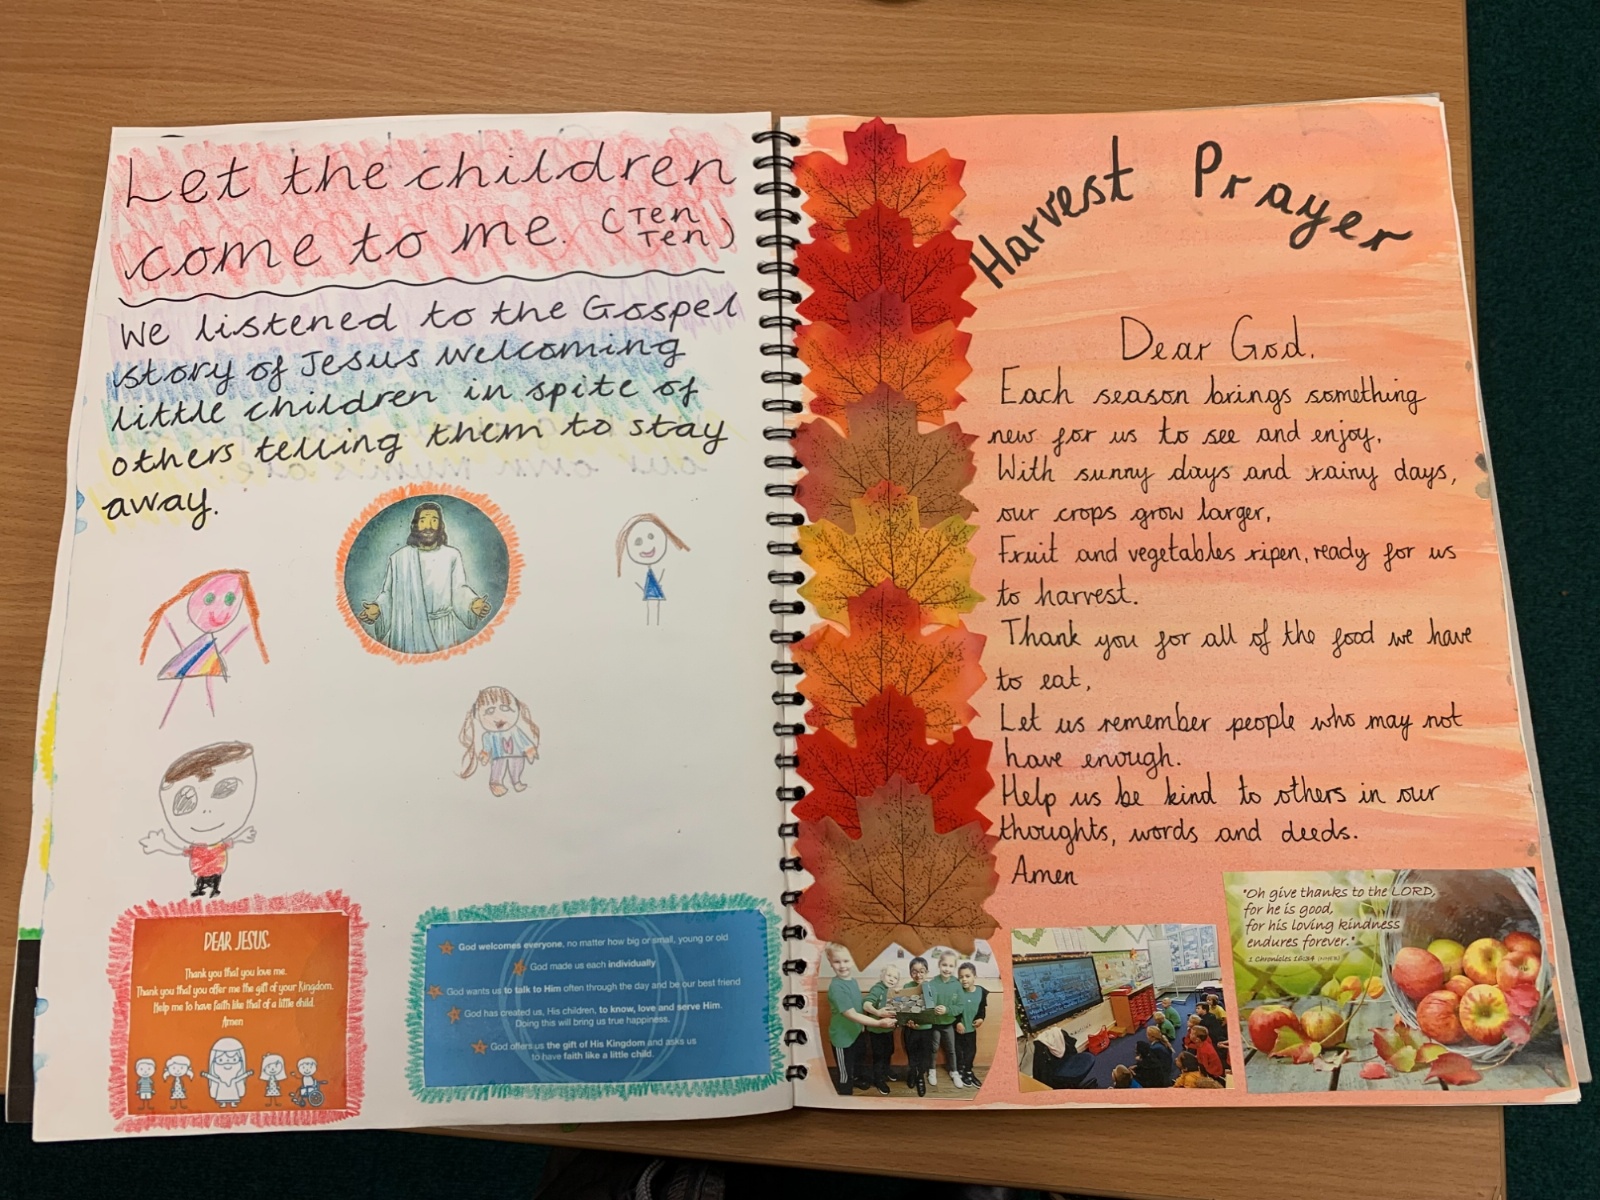 Let the children
come to me. (Ten
Ten)
We listened to the Gospel
story of Jesus welcoming
little children in spite of
others telling them to stay
away.
DEAR JESUS,
Thank you that you love me.
Thank you that you offer me the gift of your Kingdom.
Help me to have faith like that of a little child.
Amen
God welcomes everyone, no matter how big or small, young or old
God made us each individually
God wants us to talk to Him often through the day and be our best friend
God has created us, His children, to know, love and serve Him.
Doing this will bring us true happiness.
God offers us the gift of His Kingdom and asks us
to have faith like a little child.
Harvest Prayer
Dear God,
Each season brings something
new for us to see and enjoy,
With sunny days and rainy days,
our crops grow larger,
Fruit and vegetables ripen, ready for us
to harvest.
Thank you for all of the food we have
to eat,
Let us remember people who may not
have enough.
Help us be kind to others in our
thoughts, words and deeds.
Amen
"Oh give thanks to the LORD,
for he is good,
for his loving kindness
endures forever."
1 Chronicles 16:34